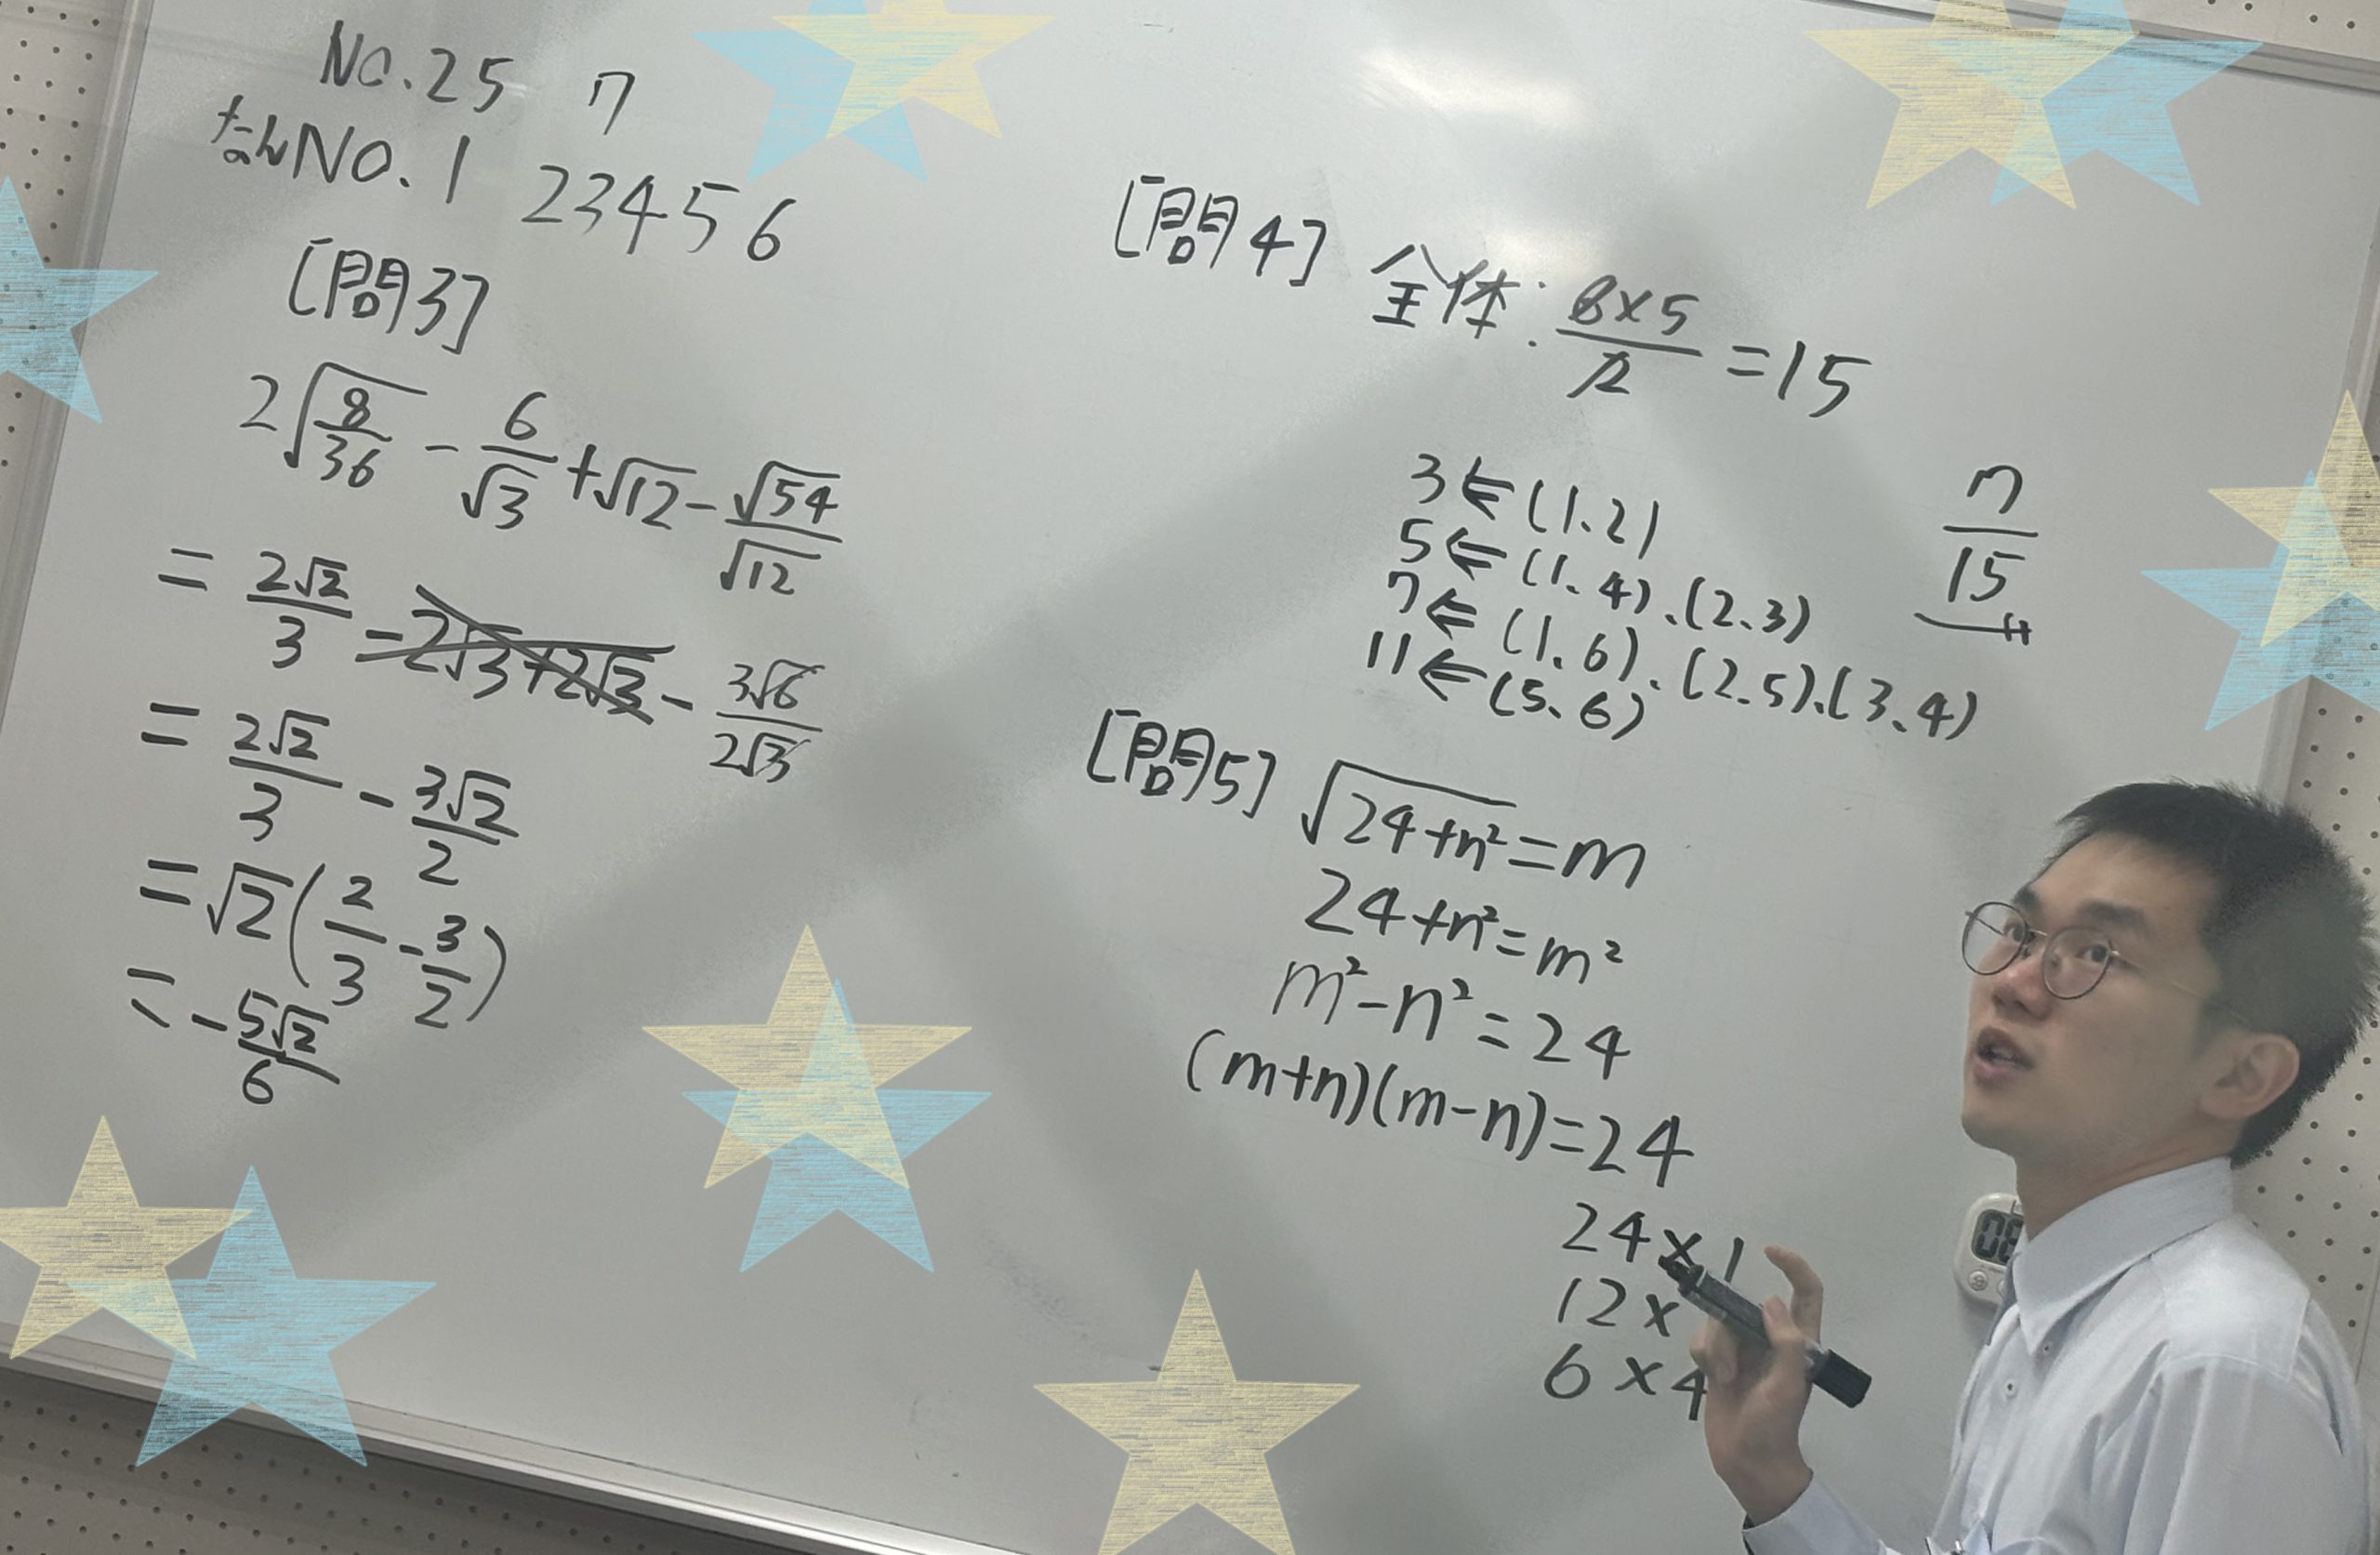 No.25 7
なんNO.1 23456
[問3]
2√(8/36) - 6/√3 + √12 - √54/√12
= 2√2/3 - 2√3+2√3 - 3√6/2√3
= 2√2/3 - 3√2/2
= √2(2/3 - 3/2)
= - 5√2/6
[問4] 全体: 6×5/2 = 15
3 ⇐ (1、2)
5 ⇐ (1、4)、(2、3)
7 ⇐ (1、6)、(2、5)、(3、4)
11 ⇐ (5、6)
7/15
[問5] √(24+n²) = m
24+n² = m²
m²-n² = 24
(m+n)(m-n) = 24
24×1
12×
6×4